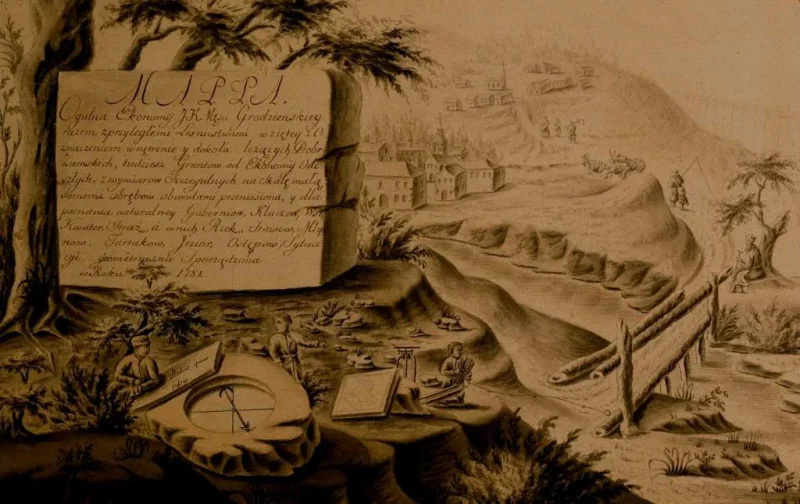 MAPPA.
Ogulna Ekonomij J.K.Mści Grodzienskiey
razem z przyległemi Lesnictwami wzięteij z O
znaczeniem wnętrznie y dokoła leżących Dobr
Ziemskich, tudziesz Gruntow od Ekonomij Ode
szłych, z wymiarow Szczegulnych na skalę małą
samemi obrębow obwodami przeniesiona, y dla
poznania naturalney Guberniow, Kluczow, Wo
Straż, a w nich Rzek, Stawow, Mły
now, Tartakow, Jezior, Ostępow, Sytua
cyi, geometrycznie Sporządzona
w Roku 1781.